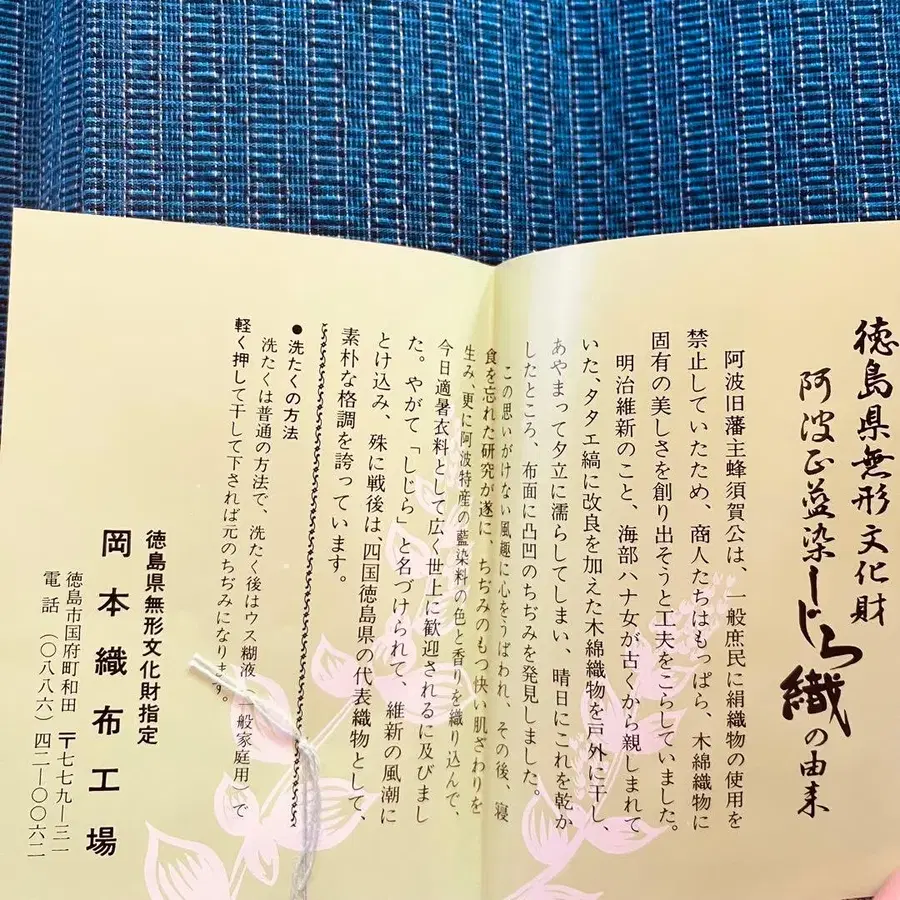 徳島県無形文化財
阿波正藍染しじら織の由来
阿波旧藩主蜂須賀公は、一般庶民に絹織物の使用を
禁止していたため、商人たちはもっぱら、木綿織物に
固有の美しさを創り出そうと工夫をこらしていました。
明治維新のこと、海部ハナ女が古くから親しまれて
いた、タタエ縞に改良を加えた木綿織物を戸外に干し、
あやまって夕立に濡らしてしまい、晴日にこれを乾か
したところ、布面に凸凹のちぢみを発見しました。
この思いがけない風趣に心をうばわれ、その後、寝
食を忘れた研究が遂に、ちぢみのもつ快い肌ざわりを
生み、更に阿波特産の藍染料の色と香りを織り込んで、
今日適暑衣料として広く世上に歓迎されるに及びまし
た。やがて「しじら」と名づけられて、維新の風潮に
とけ込み、殊に戦後は、四国徳島県の代表織物として、
素朴な格調を誇っています。
●洗たくの方法
洗たくは普通の方法で、洗たく後はウス糊液（一般家庭用）で
軽く押して干して下されば元のちぢみになります。
徳島県無形文化財指定
岡本織布工場
徳島市国府町和田 〒七七九―三一
電話（〇八八六）四二―〇〇六二